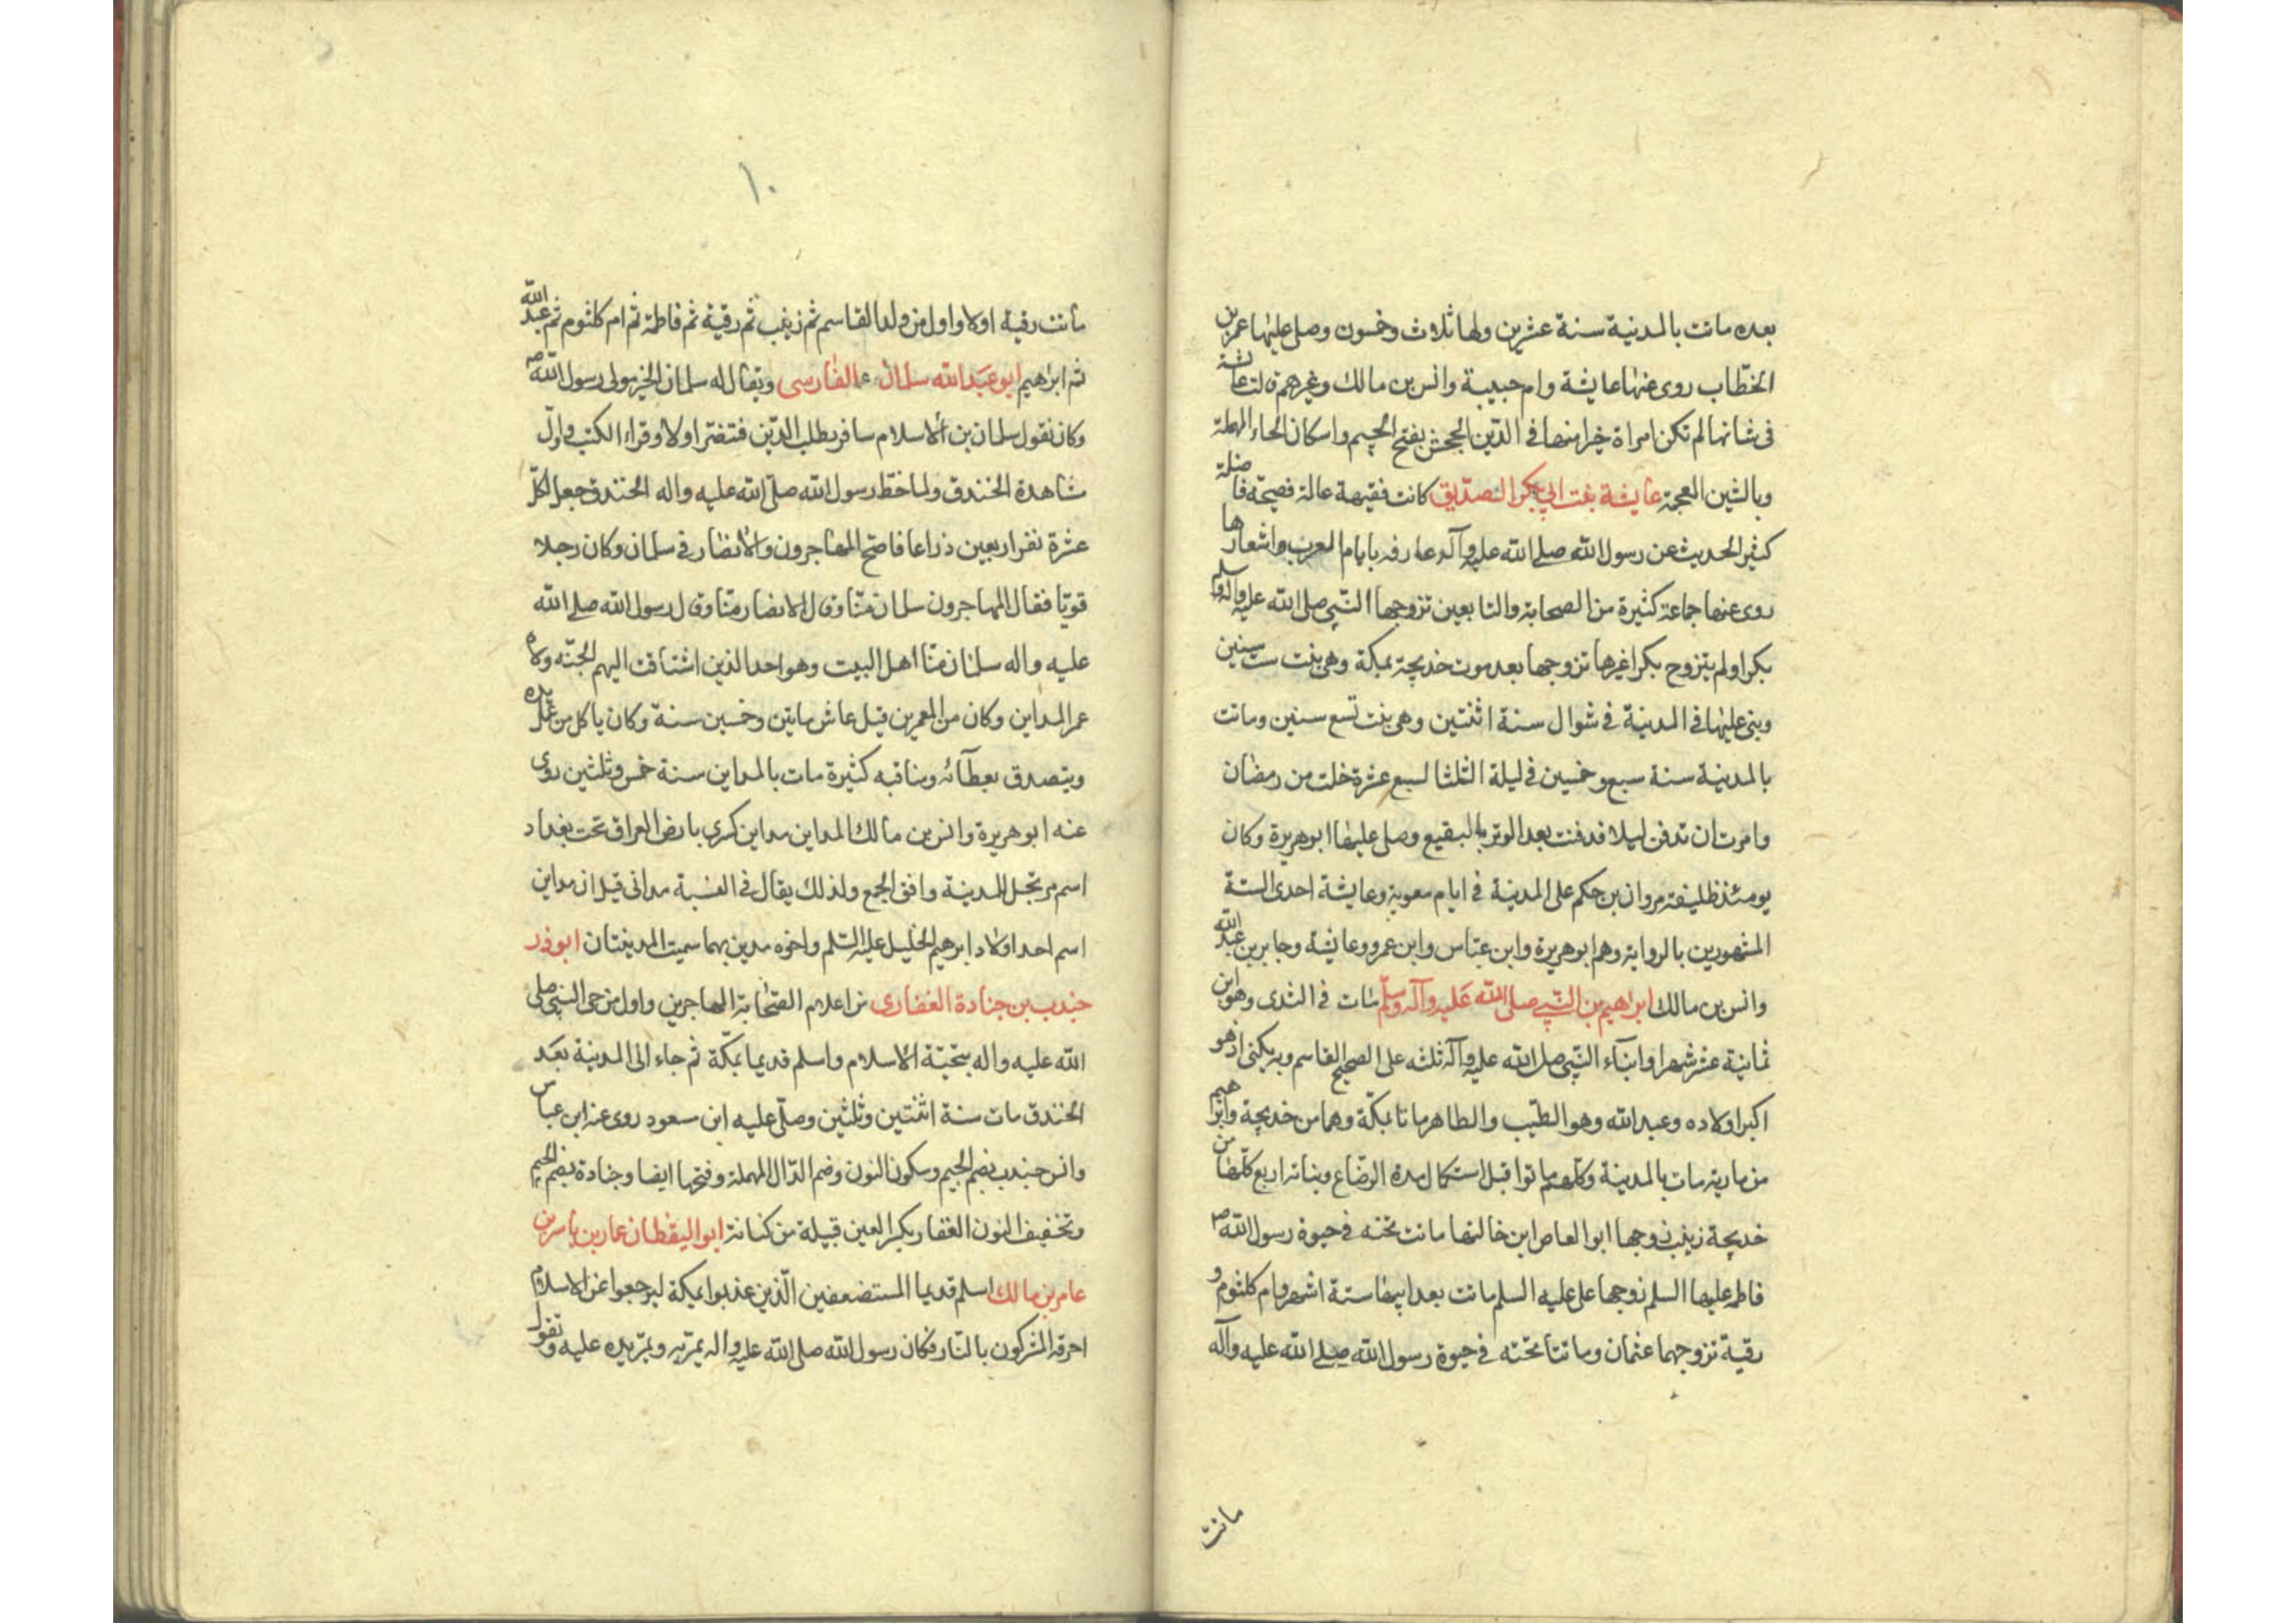 بعده ماتت بالمدينة سنة عشرين ولها ثلاث وخمسون وصلى عليها عمر بن
الخطّاب روى عنها عايشة وام حبيبة وانس بن مالك وغيرهم قالت عائشة
فى شانها لم تكن امراة خيرا منها فى الدّين الجحش بفتح الجيم واسكان الحاء المهملة
وبالشين المعجمة عايشة بنت ابى بكر الصدّيق كانت فقيهة عالمة فصيحة فاضلة
كثير الحديث عن رسول الله صلى الله عليه وآله عارفه بايام العرب واشعارها
روى عنها جماعة كثيرة من الصحابة والتابعين تزوجها النّبى صلى الله عليه وآله وسلم
بكرا ولم يتزوج بكرا غيرها تزوجها بعد موت خديجة بمكة وهى بنت ست سنين
وبنى عليها فى المدينة فى شوال سنة اثنتين وهى بنت تسع سنين وماتت
بالمدينة سنة سبع وخمسين فى ليلة الثلثا لسبع عشرة خلت من رمضان
وامرت ان تدفن ليلا فدفنت بعد الوتر بالبقيع وصلى عليها ابوهريرة وكان
يومئذ خليفة مروان بن حكم على المدينة فى ايام معوية وعايشة احدى الستة
المشهورين بالرواية وهم ابوهريرة وابن عبّاس وابن عمر وعايشة وجابر بن عبد الله
وانس بن مالك ابراهيم بن النّبى صلى الله عليه وآله وسلّم مات فى الثدى وهو ابن
ثمانية عشر شهرا وابنآء النّبى صلى الله عليه وآله ثلثه على الصحيح القاسم وبه يكنى اذ هو
اكبر اولاده وعبد الله وهو الطّيب والطاهر ماتا بمكّة وهما من خديجة وابراهيم
من مارية مات بالمدينة وكلّهم ماتوا قبل استكمال مدة الرّضاع وبناته اربع كلّها من
خديجة زينب زوجها ابوا العاص ابن خالتها ماتت تحته فى حيوة رسول الله ص
فاطمه عليها السلم زوجها على عليه السلم ماتت بعد ابيها ستة اشهر وام كلثوم و
رقية تزوجهما عثمان وماتتا تحته فى حيوة رسول الله صلى الله عليه وآله
ماتت
١٠
ماتت رقية اولا واول من ولد القاسم ثم زينب ثم رقية ثم فاطمة ثم ام كلثوم ثم عبد الله
ثم ابراهيم ابو عبد الله سلمان الفارسى ويقال له سلمان الخير مولى رسول الله ص
وكان يقول سلمان بن الاسلام سافر بطلب الدّين فتنصّر اولا وقراء الكتب واول
مشاهدة الخندق ولما خطّ رسول الله صلّى الله عليه واله الخندق جعل لكلّ
عشرة نفر اربعين ذراعا فاحتج المهاجرون والانصار فى سلمان وكان رجلا
قويّا فقال المهاجرون سلمان منّا وقال الانصار منّا وقال رسول الله صلى الله
عليه واله سلمان منّا اهل البيت وهو احد الذين اشتاقت اليهم الجنّه وولاه
عمر المداين وكان من المعمرين قيل عاش مايتين وخمسين سنة وكان ياكل من عمل يده
ويتصدق بعطآئه ومناقبه كثيرة مات بالمداين سنة خمس وثلثين روى
عنه ابو هريرة وانس بن مالك المداين مداين كسرى بارض العراق تحت بغداد
اسم مرتجل للمدينة وافق الجمع ولذلك يقال فى النسبة مدانى قيل ان مداين
اسم احد اولاد ابرهيم الخليل عليه السّلم واخوه مدين بهما سميت المدينتان ابوذر
جندب بن جنادة الغفارى من اعلام الصّحابة المهاجرين واول من حى النبى صلى
الله عليه واله بتحيّة الاسلام واسلم قديما بمكّة ثم جاء الى المدينة بعد
الخندق مات سنة اثنتين وثلثين وصلّى عليه ابن مسعود روى عنه ابن عباس
وانس جندب بضم الجيم وسكون النون وضم الدّال المهملة وفتحها ايضا وجنادة بضم الجيم
وتخفيف النون الغفار بكسر العين قبيلة من كنانة ابوا اليقظان عمار بن ياسر بن
عامر بن مالك اسلم قديما المستضعفين الّذين عذبوا بمكة ليرجعوا عن الاسلام
احرقه المشركون بالنّار فكان رسول الله صلى الله عليه واله يمرّ به ويمرّ يده عليه وتقول